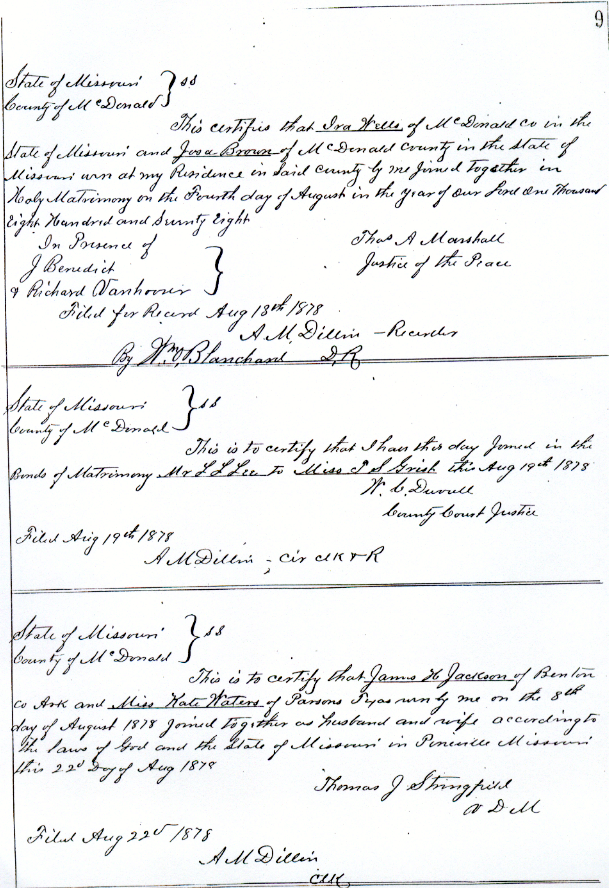 9
State of Missouri } ss
County of McDonald
This certifies that Ira Wells of McDonald co in the
State of Missouri and Josa Brown of McDonald County in the State of
Missouri were at my Residence in said County by me Joined together in
Holy Matrimony on the Fourth day of August in the Year of Our Lord One Thousand
Eight Hundred and Seventy Eight
In Presence of
J Benedict
& Richard Vanhooser
Thos A Marshall
Justice of the Peace
Filed for Record Aug 13th 1878
A M, Dillin - Recorder
By Wm Blanchard D, R
State of Missouri } ss
County of McDonald
This is to certify that I have this day Joined in the
Bonds of Matrimony Mr L L Lee to Miss S this Aug 19th 1878
W. C. Duvall
County Court Justice
Filed Aug 19th 1878
A M Dillin - Cir Clk & R
State of Missouri } ss
County of McDonald
This is to certify that James H Jackson of Benton
co Ark and Miss Kate Waters of Parsons were by me on the 8th
day of August 1878 Joined together as husband and wife according to
the laws of God and the State of Missouri in Pineville Missouri
this 22d Day of Aug 1878
Thomas J Stringfield
D M
Filed Aug 22d 1878
A M Dillin
Clk